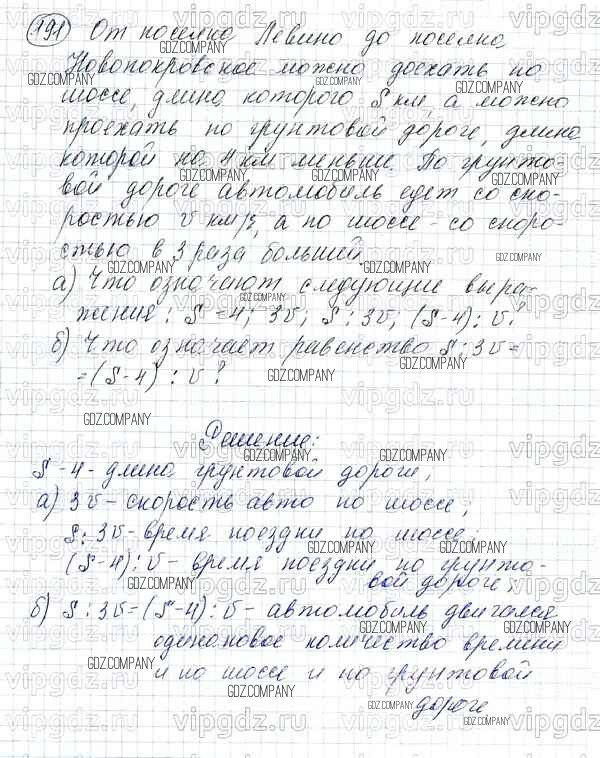 191 От поселка Левино до поселка
Новопокровское можно доехать по
шоссе, длина которого S км, а можно
проехать по грунтовой дороге, длина
которой на 4 км меньше. По грунто-
вой дороге автомобиль едет со ско-
ростью v км/ч, а по шоссе - со скоро-
стью в 3 раза большей.
а) Что означают следующие выра-
жения: S = 4; 3v; S : 3v; (S-4) : v?
б) Что означает равенство S : 3v =
= (S-4) : v?
Решение:
S - 4 - длина грунтовой дороги;
а) 3v - скорость авто по шоссе;
S : 3v - время поездки по шоссе;
(S-4) : v - время поездки по грунто-
вой дороге;
б) S : 3v = (S-4) : v - автомобиль двигался
одинаковое количество времени
и по шоссе и по грунтовой
дороге
vipgdz.ru
GDZ.COMPANY